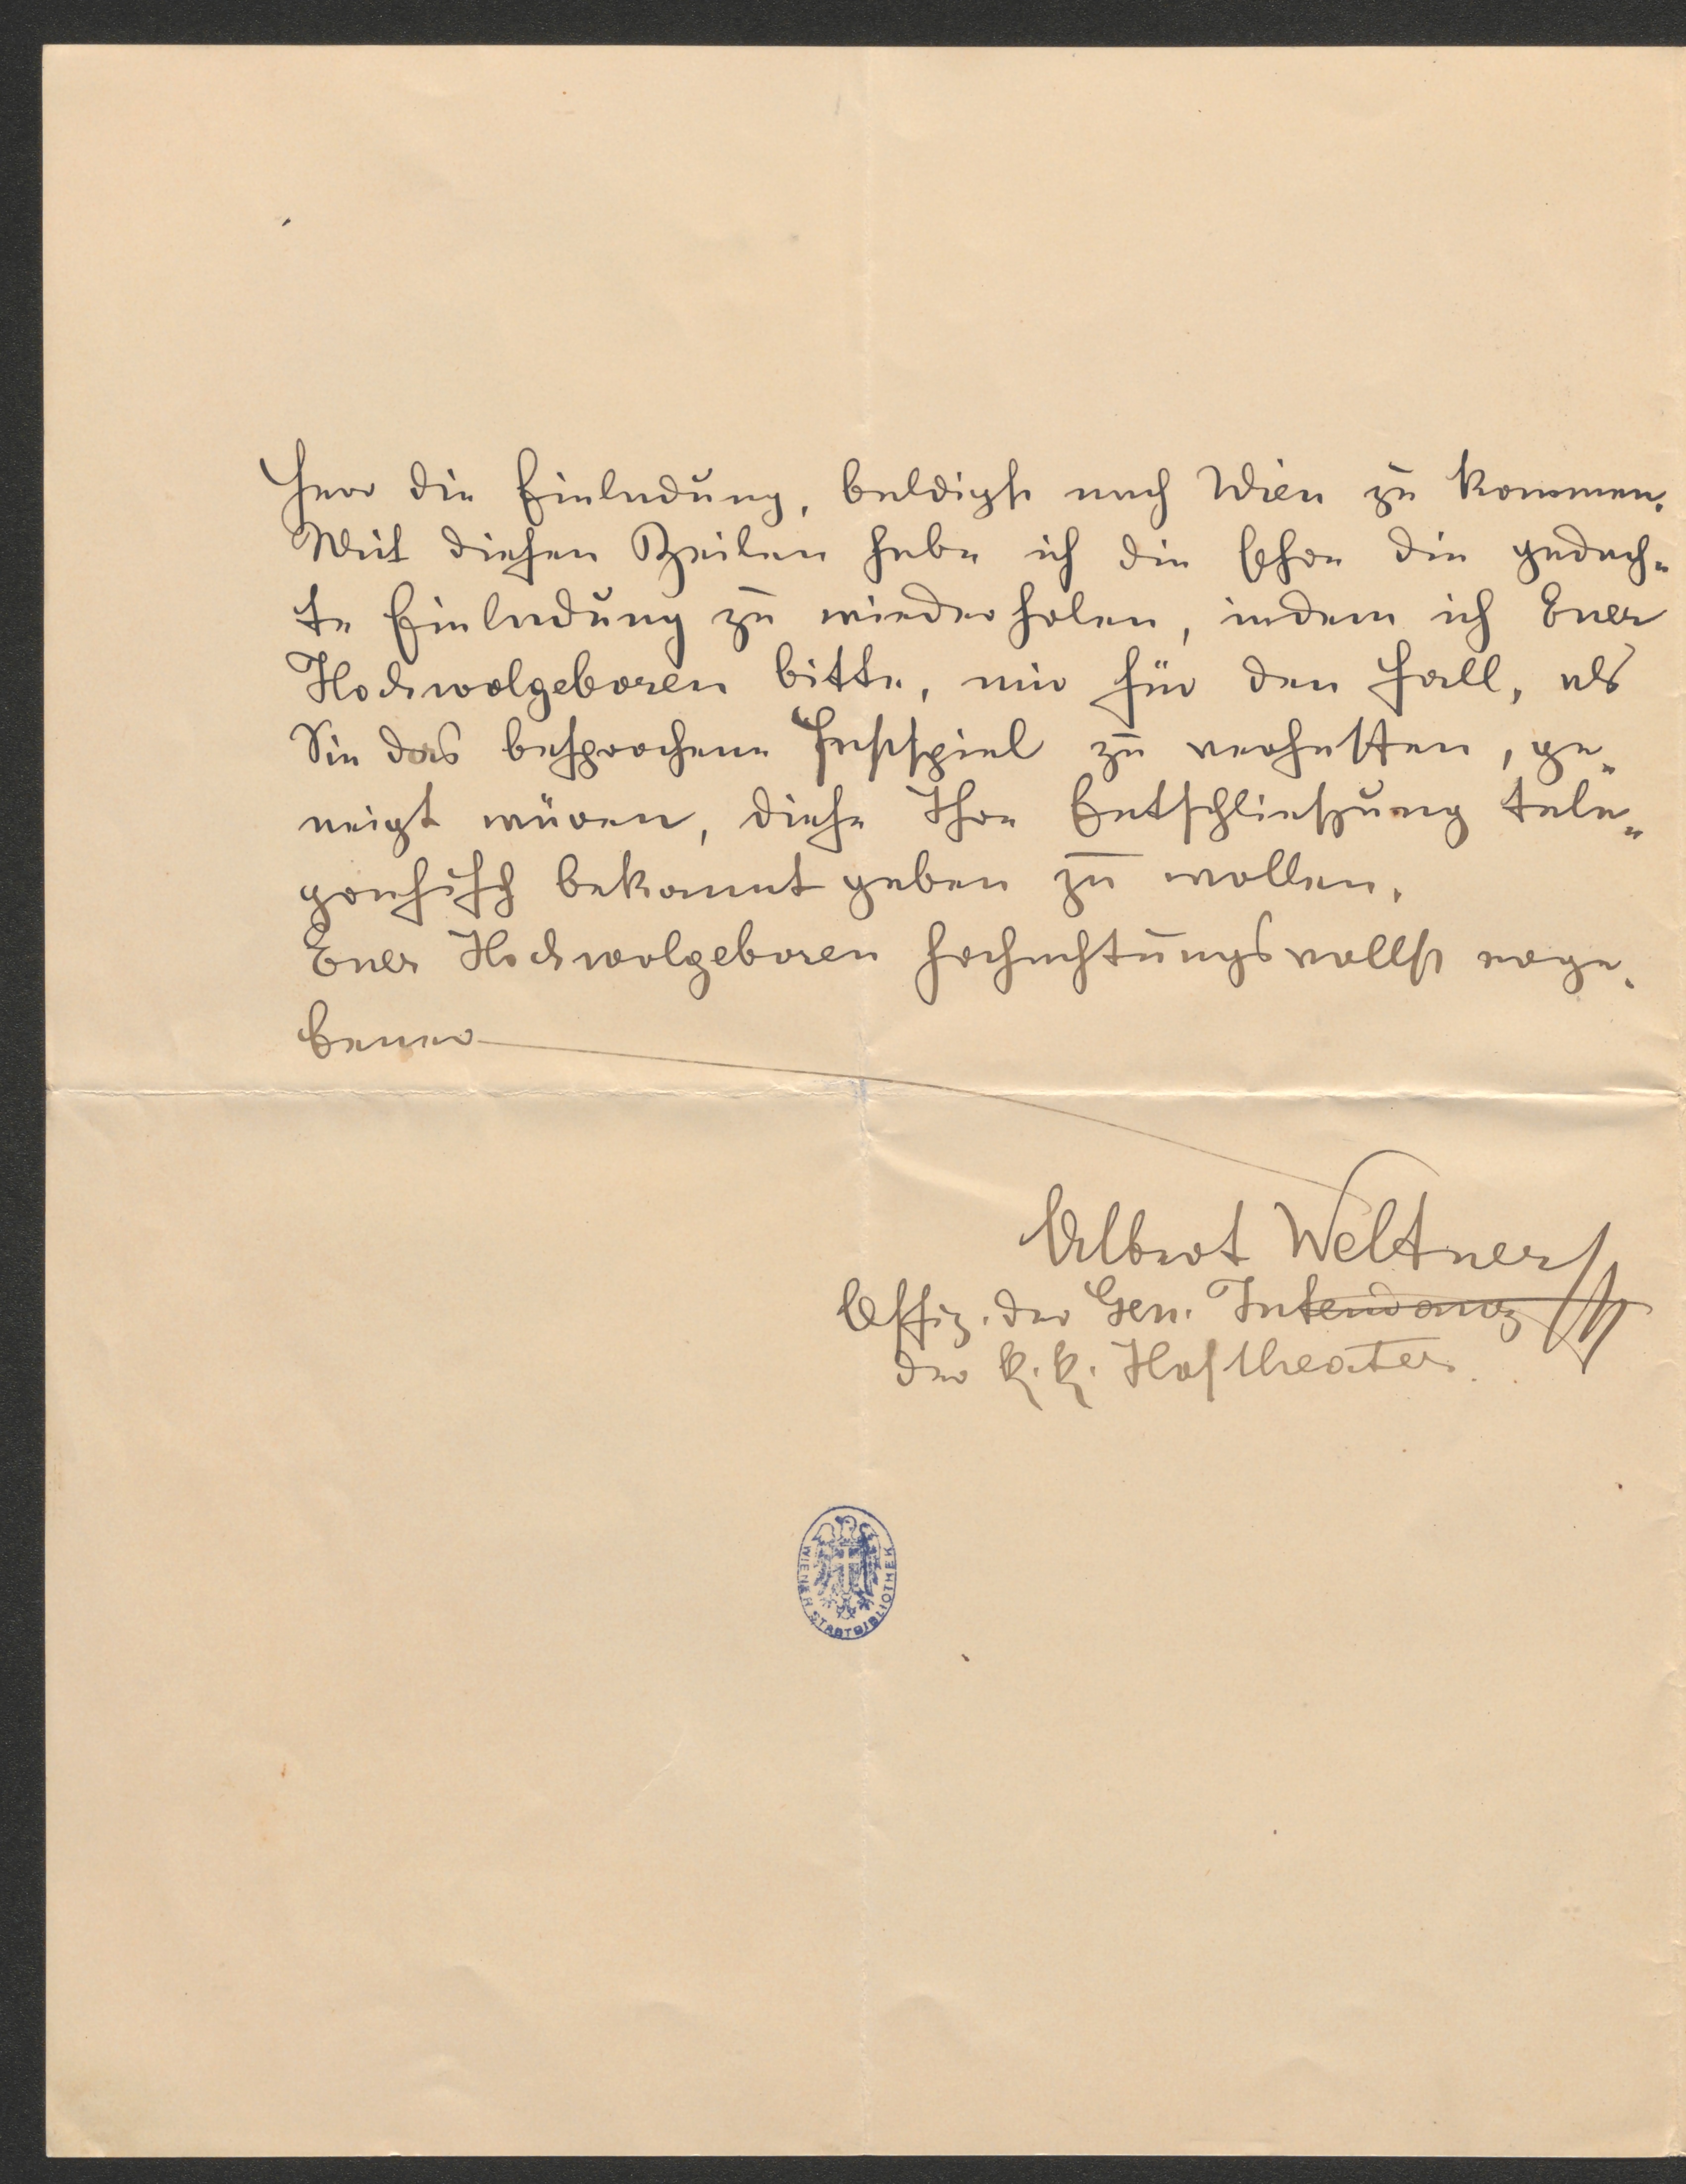 her die Einladung, baldigst nach Wien zu kommen.
Mit diesen Zeilen habe ich die Ehre die gedach-
te Einladung zu wiederholen, indem ich Euer
Hochwolgeboren bitte, mir für den Fall, als
Sie das besprochene Festspiel zu verfassen, ge-
neigt wären, diese Ihre Entschließung tele-
grafisch bekannt geben zu wollen.
Euer Hochwolgeboren hochachtungsvollst erge-
bener
Albert Weltner
Offiz. der Gen. Intendanz
der k. k. Hoftheater.
WIENER STADTBIBLIOTHEK